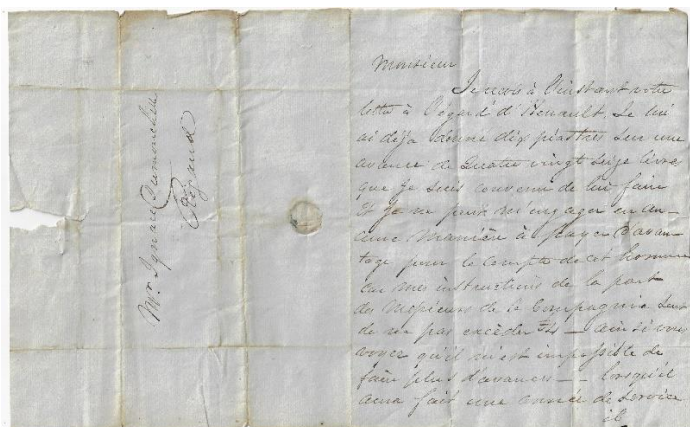 Mr Ignace Dumouchel
Rigaud
Monsieur
Je reçois à l'instant votre
lettre à l'égard d'Henault, Je lui
ai déja donné dix piastres sur une
avance de Quatre vingt seize livres
que Je suis convenu de lui faire
Et je ne puis m'engager en au-
cune manière à payer d'avan-
tage pour le Compte de cet homme
car mes instructions de la part
des Messieurs de la Compagnie sont
de ne pas excéder — ainsi vous
voyez qu'il m'est impossible de
faire plus d'avances — lorsqu'il
aura fait une année de service
il